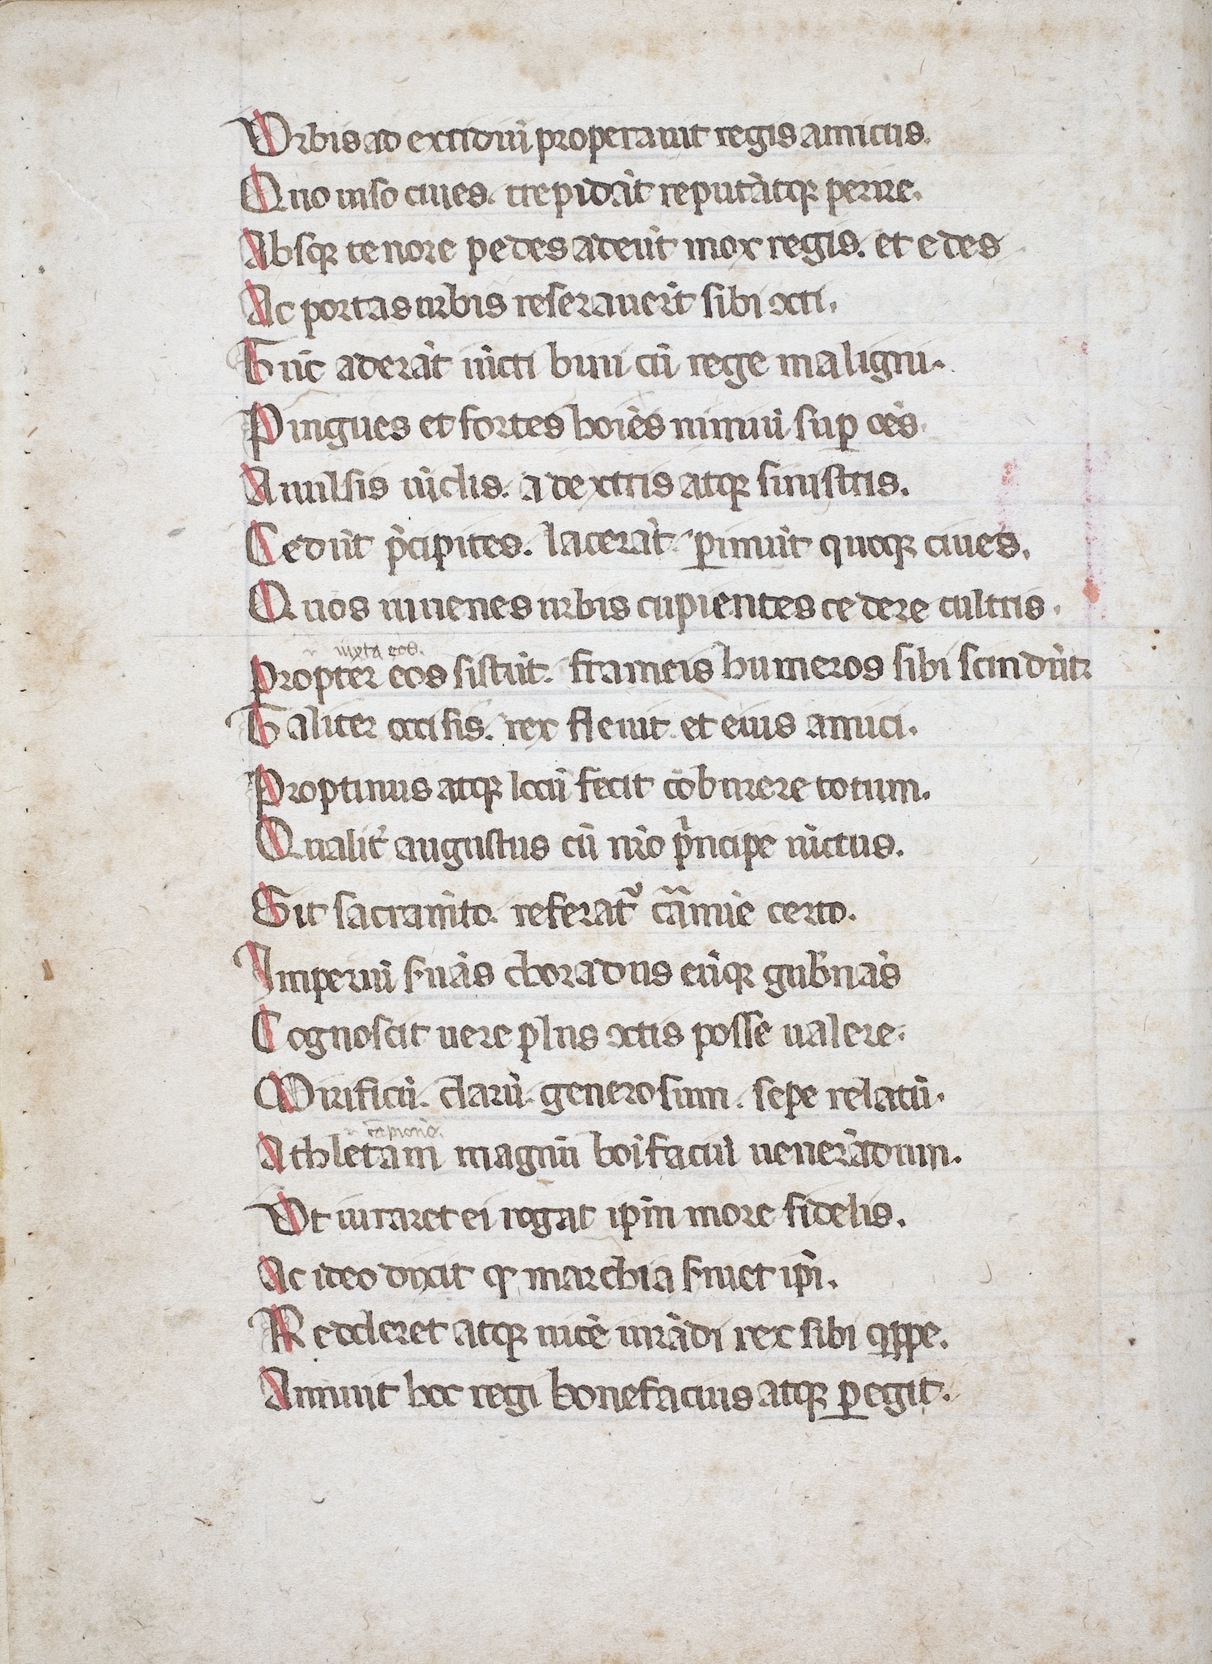 Urbis ad excidiũ properauit regis amicus.
Quo uiso ciues. trepidãt reputãtqꝫ perire.
Absqꝫ tenore pedes adeũt mox regis. et edes
Ac portas urbis reserauerũt sibi xɔti.
Tũc aderãt uĩcti bini cũ rege maligni.
Pingues et fortes hoĩes nimiũ suꝑ oẽs.
Auulsis uĩclis. a dextris atqꝫ sinistris.
Cedũt p̃cipites. lacerãt ꝑimũt quoqꝫ ciues.
Quos iuuenes urbis cupientes cedere cultris.
iuxta eos.
Propter eos sistũt. frameis humeros sibi scindũt.
Taliter occisis. rex fleuit et eius amici.
Protinus atqꝫ locũ fecit cõburere totum.
Qualit̃ augustus cũ nr̃o p̃ncipe uĩctus.
Sit sacramẽto. referat᷑ cãmĩe certo.
Imperiũ suãs choradus eũqꝫ gub̃nãs
Cognoscit uere plus xɔtis posse ualere.
Mirificũ. clarũ. generosum. sepe relatũ.
cãpionẽ.
Athletam magnũ boĩfaciũ uenerãdum.
Ut iuraret ei rogat ip̃m more fidelis.
Ac ideo dixit qꝫ marchia seruiet ip̃i.
Redderet atqꝫ uicẽ iurãdi rex sibi quippe.
Annuit hoc regi bonefacius atqꝫ ꝑegit.